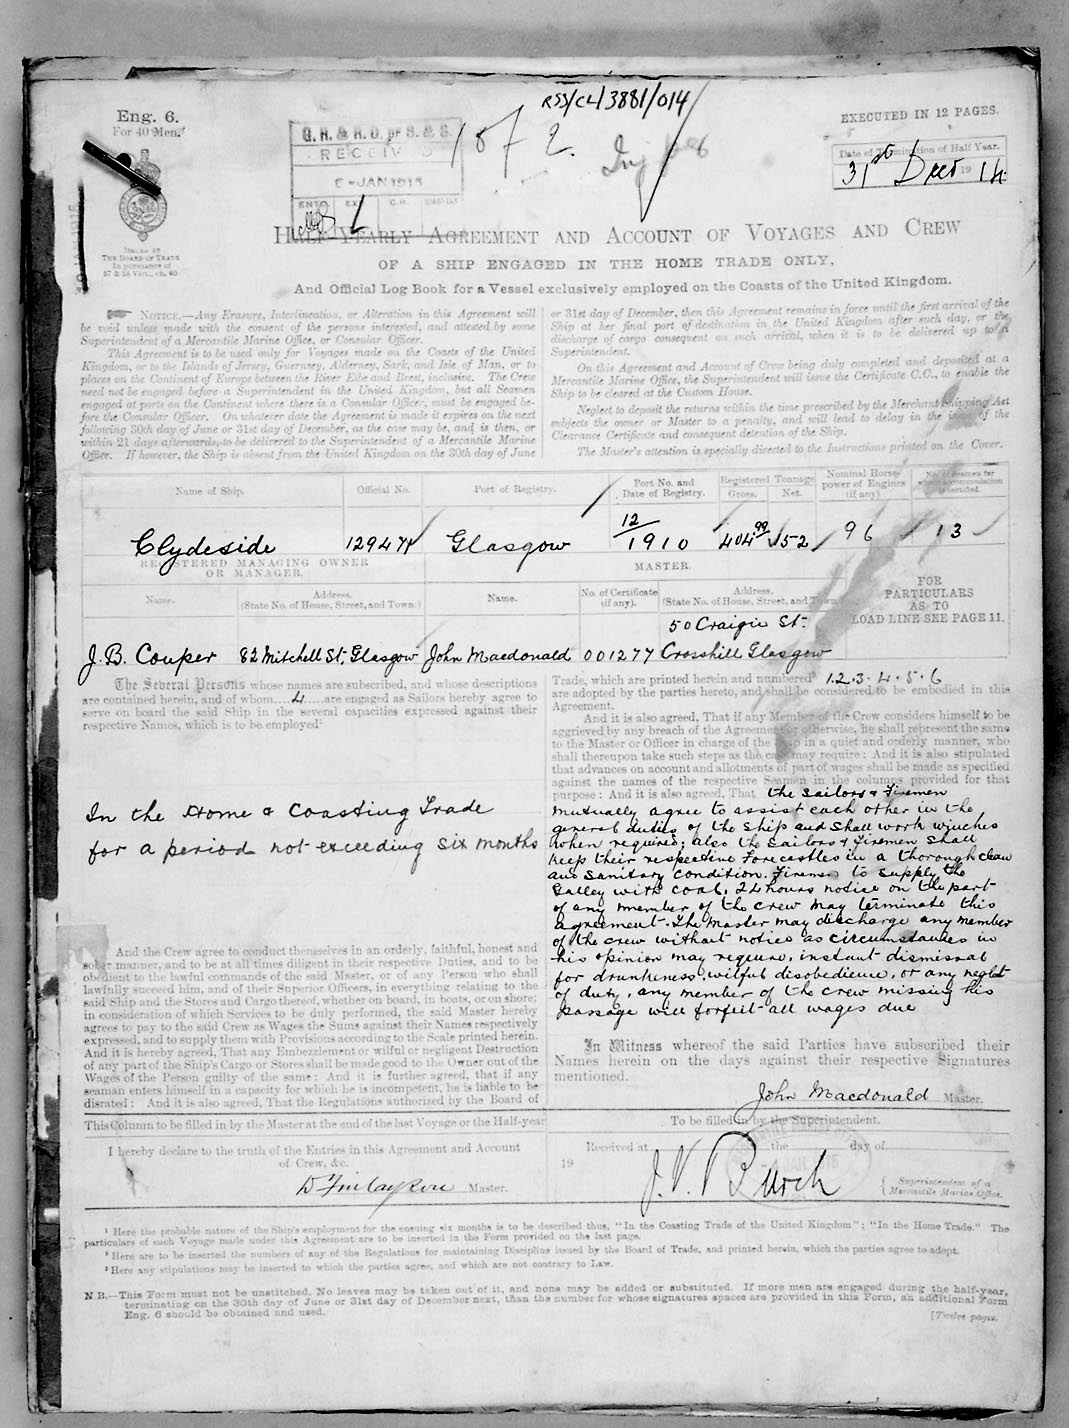 RSS/CL/3881/014
Eng. 6.
For 40 Men.
EXECUTED IN 12 PAGES.
G. R. & R. O. of S. & S.
RECEIVED
6 - JAN 1915
1 of 2.
Date of Termination of Half Year.
31st Decr 19 14
ISSUED BY
THE BOARD OF TRADE
In pursuance of
57 & 58 Vict., ch. 60
HALF-YEARLY AGREEMENT AND ACCOUNT OF VOYAGES AND CREW
OF A SHIP ENGAGED IN THE HOME TRADE ONLY,
And Official Log Book for a Vessel exclusively employed on the Coasts of the United Kingdom.
NOTICE.—Any Erasure, Interlineation, or Alteration in this Agreement will
be void unless made with the consent of the persons interested, and attested by some
Superintendent of a Mercantile Marine Office, or Consular Officer.
This Agreement is to be used only for Voyages made on the Coasts of the United
Kingdom, or to the Islands of Jersey, Guernsey, Alderney, Sark, and Isle of Man, or to
places on the Continent of Europe between the River Elbe and Brest, inclusive. The Crew
need not be engaged before a Superintendent in the United Kingdom, but all Seamen
engaged at ports on the Continent where there is a Consular Officer, must be engaged be-
fore the Consular Officer. On whatever date the Agreement is made it expires on the next
following 30th day of June or 31st day of December, as the case may be, and is then, or
within 21 days afterwards, to be delivered to the Superintendent of a Mercantile Marine
Office. If however, the Ship is absent from the United Kingdom on the 30th day of June
or 31st day of December, then this Agreement remains in force until the first arrival of the
Ship at her final port of destination in the United Kingdom after such day, or the
discharge of cargo consequent on such arrival, when it is to be delivered up to a
Superintendent.
On this Agreement and Account of Crew being duly completed and deposited at a
Mercantile Marine Office, the Superintendent will issue the Certificate C.C., to enable the
Ship to be cleared at the Custom House.
Neglect to deposit the returns within the time prescribed by the Merchant Shipping Act
subjects the owner or Master to a penalty, and will lead to delay in the issue of the
Clearance Certificate and consequent detention of the Ship.
The Master's attention is specially directed to the Instructions printed on the Cover.
Name of Ship. Official No. Port of Registry. Port No. and Date of Registry. Registered Tonnage Gross. Net. Nominal Horse-power of Engines (if any) No. of Seamen for whom accommodation is certified.
Clydeside 129474 Glasgow 12/1910 404.99 152 96 13
REGISTERED MANAGING OWNER
OR MANAGER.
MASTER.
Name. Address. (State No. of House, Street, and Town.) Name. No. of Certificate (if any). Address. (State No. of House, Street, and Town.)
FOR
PARTICULARS
AS TO
LOAD LINE SEE PAGE 11.
50 Craigie St.
J. B. Couper 82 Mitchell St, Glasgow John Macdonald 001277 Crosshill Glasgow
The Several Persons whose names are subscribed, and whose descriptions
are contained herein, and of whom 4 are engaged as Sailors hereby agree to
serve on board the said Ship in the several capacities expressed against their
respective Names, which is to be employed¹
In the Home & Coasting Trade
for a period not exceeding six months
And the Crew agree to conduct themselves in an orderly, faithful, honest and
sober manner, and to be at all times diligent in their respective Duties, and to be
obedient to the lawful commands of the said Master, or of any Person who shall
lawfully succeed him, and of their Superior Officers, in everything relating to the
said Ship and the Stores and Cargo thereof, whether on board, in boats, or on shore;
in consideration of which Services to be duly performed, the said Master hereby
agrees to pay to the said Crew as Wages the Sums against their Names respectively
expressed, and to supply them with Provisions according to the Scale printed herein.
And it is hereby agreed, That any Embezzlement or wilful or negligent Destruction
of any part of the Ship's Cargo or Stores shall be made good to the Owner out of the
Wages of the Person guilty of the same: And it is further agreed, that if any
seaman enters himself in a capacity for which he is incompetent, he is liable to be
disrated: And it is also agreed, That the Regulations authorized by the Board of
Trade, which are printed herein and numbered² 1.2.3.4.5.6
are adopted by the parties hereto, and shall be considered to be embodied in this
Agreement.
And it is also agreed, That if any Member of the Crew considers himself to be
aggrieved by any breach of the Agreement or otherwise, he shall represent the same
to the Master or Officer in charge of the Ship in a quiet and orderly manner, who
shall thereupon take such steps as the case may require: And it is also stipulated
that advances on account and allotments of part of wages shall be made as specified
against the names of the respective Seamen in the columns provided for that
purpose: And it is also agreed, That the Sailors & Firemen
mutually agree to assist each other in the
general duties of the ship and shall work winches
when required; also the Sailors & Firemen shall
keep their respective Forecastles in a thorough clean
and sanitary condition. Firemen to supply the
Galley with coal. 24 hours notice on the part
of any member of the crew may terminate this
agreement. The Master may discharge any member
of the crew without notice as circumstances in
his opinion may require, instant dismissal
for drunkness, wilful disobedience, or any neglect
of duty, any member of the crew missing his
passage will forfeit all wages due
In Witness whereof the said Parties have subscribed their
Names herein on the days against their respective Signatures
mentioned.
John Macdonald Master.
This Column to be filled in by the Master at the end of the last Voyage or the Half-year
To be filled in by the Superintendent.
I hereby declare to the truth of the Entries in this Agreement and Account
of Crew, &c.
D Finlayson Master.
Received at the day of
19
J. V. Burch
Superintendent of a
Mercantile Marine Office.
¹ Here the probable nature of the Ship's employment for the ensuing six months is to be described thus, "In the Coasting Trade of the United Kingdom"; "In the Home Trade." The
particulars of each Voyage made under this Agreement are to be inserted in the Form provided on the last page.
² Here are to be inserted the numbers of any of the Regulations for maintaining Discipline issued by the Board of Trade, and printed herein, which the parties agree to adopt.
³ Here any stipulations may be inserted to which the parties agree, and which are not contrary to Law.
N.B.—This Form must not be unstitched. No leaves may be taken out of it, and none may be added or substituted. If more men are engaged during the half-year,
terminating on the 30th day of June or 31st day of December next, than the number for whose signatures spaces are provided in this Form, an additional Form
Eng. 6 should be obtained and used.
[Twelve pages.